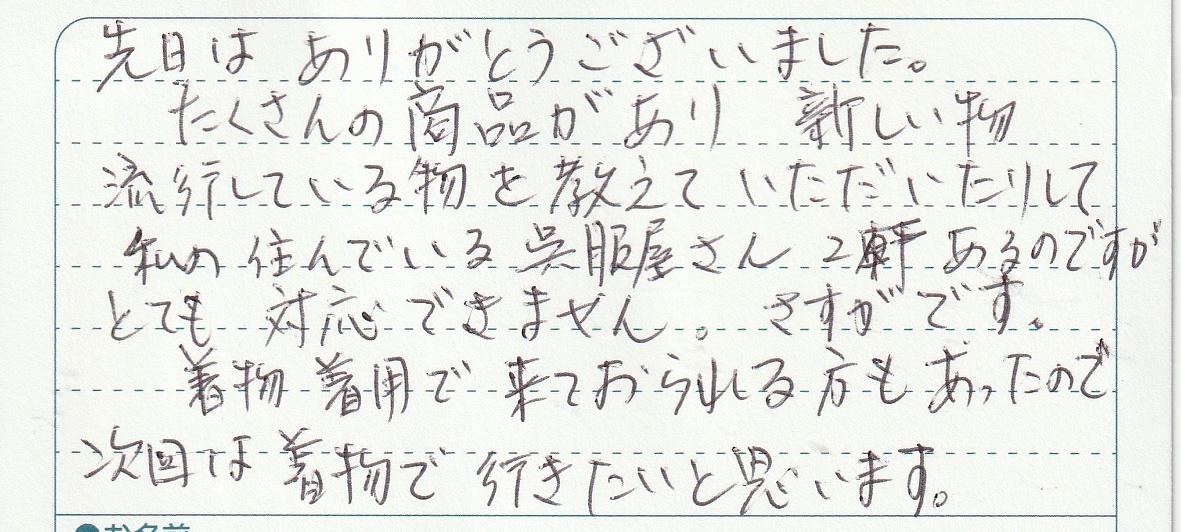 先日は ありがとうございました。
たくさんの商品があり 新しい物
流行している物を教えていただいたりして
私の住んでいる呉服屋さん2軒あるのですが
とても対応できません。さすがです。
着物着用で来ておられる方もあったので
次回は着物で行きたいと思います。